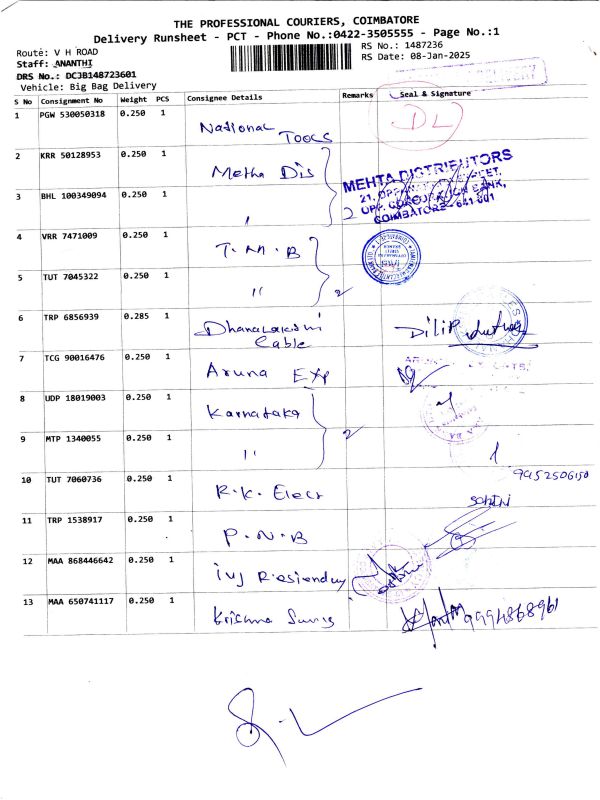 THE PROFESSIONAL COURIERS, COIMBATORE
Delivery Runsheet - PCT - Phone No.:0422-3505555 - Page No.:1
Route: V H ROAD
RS No.: 1487236
Staff: ANANTHI
RS Date: 08-Jan-2025
DRS No.: DCJB148723601
Vehicle: Big Bag Delivery
S No Consignment No Weight PCS Consignee Details Remarks Seal & Signature
1 PGW 530050318 0.250 1 National Tools DL
2 KRR 50128953 0.250 1 Metha Dis
MEHTA DISTRIBUTORS
21, STREET,
OPP. BANK,
COIMBATORE - 641 001
3 BHL 100349094 0.250 1 "
2
4 VRR 7471009 0.250 1 T.M.B
5 TUT 7045322 0.250 1 "
2
6 TRP 6856939 0.285 1 Dhanalakshmi
Cable
Dilip
7 TCG 90016476 0.250 1 Aruna Exp
8 UDP 18019003 0.250 1 Karnataka
9 MTP 1340055 0.250 1 "
2
10 TUT 7060736 0.250 1 R.K. Elect
9952506150
11 TRP 1538917 0.250 1 P.N.B
12 MAA 868446642 0.250 1
13 MAA 650741117 0.250 1 Krishna
9994868961